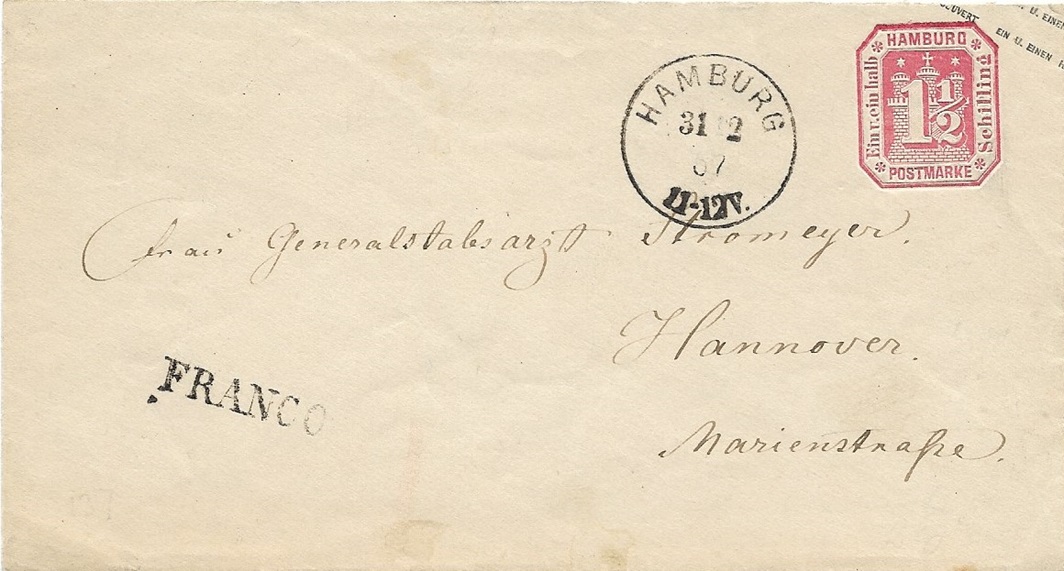 COUVERT U. EINEN
EIN U. EINEN
HAMBURG
Ein u. ein halb
1 1/2
Schilling
POSTMARKE
HAMBURG
31 12
67
11-12V.
Frau Generalstabsarzt Stromeyer.
Hannover.
FRANCO
Marienstraße.